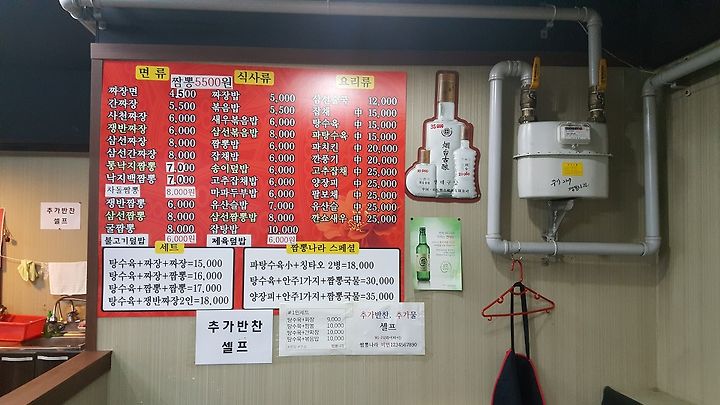 면 류
짬뽕5500원
식사류
요리류
짜장면 4,500
간짜장 5,500
사천짜장 6,000
쟁반짜장 6,000
삼선짜장 8,000
삼선간짜장 8,000
통낙지짬뽕 7,000
낙지백짬뽕 7,000
차돌짬뽕 8,000원
쟁반짬뽕 6,000
삼선짬뽕 8,000
굴짬뽕 8,000
불고기덮밥 6,000원
짜장밥 5,000
볶음밥 5,500
새우볶음밥 6,000
삼선볶음밥 8,000
짬뽕밥 6,000
잡채밥 6,000
송이덮밥 6,000
고추잡채밥 6,000
마파두부밥 6,000
유산슬밥 7,000
삼선짬뽕밥 8,000
잡탕밥 10,000
제육덮밥 6,000원
12,000
中 15,000
탕수육 中 15,000
파탕수육 中 15,000
파치킨 中 20,000
깐풍기 中 20,000
고추잡채 中 25,000
양장피 中 25,000
팔보채 中 25,000
유산슬 中 25,000
깐소새우 中 25,000
세트
탕수육+짜장+짜장=15,000
탕수육+짜장+짬뽕=16,000
탕수육+짬뽕+짬뽕=17,000
탕수육+쟁반짜장2인=18,000
짬뽕나라 스페셜
파탕수육小+칭타오 2병=18,000
탕수육+안주1가지+짬뽕국물=30,000
양장피+안주1가지+짬뽕국물=35,000
추가반찬
셀프
추가반찬
셀프
#1인세트
탕수육+짜장 9,000
탕수육+짬뽕 10,000
탕수육+간짜장 10,000
탕수육+볶음밥 10,000
추가반찬, 추가물
셀프